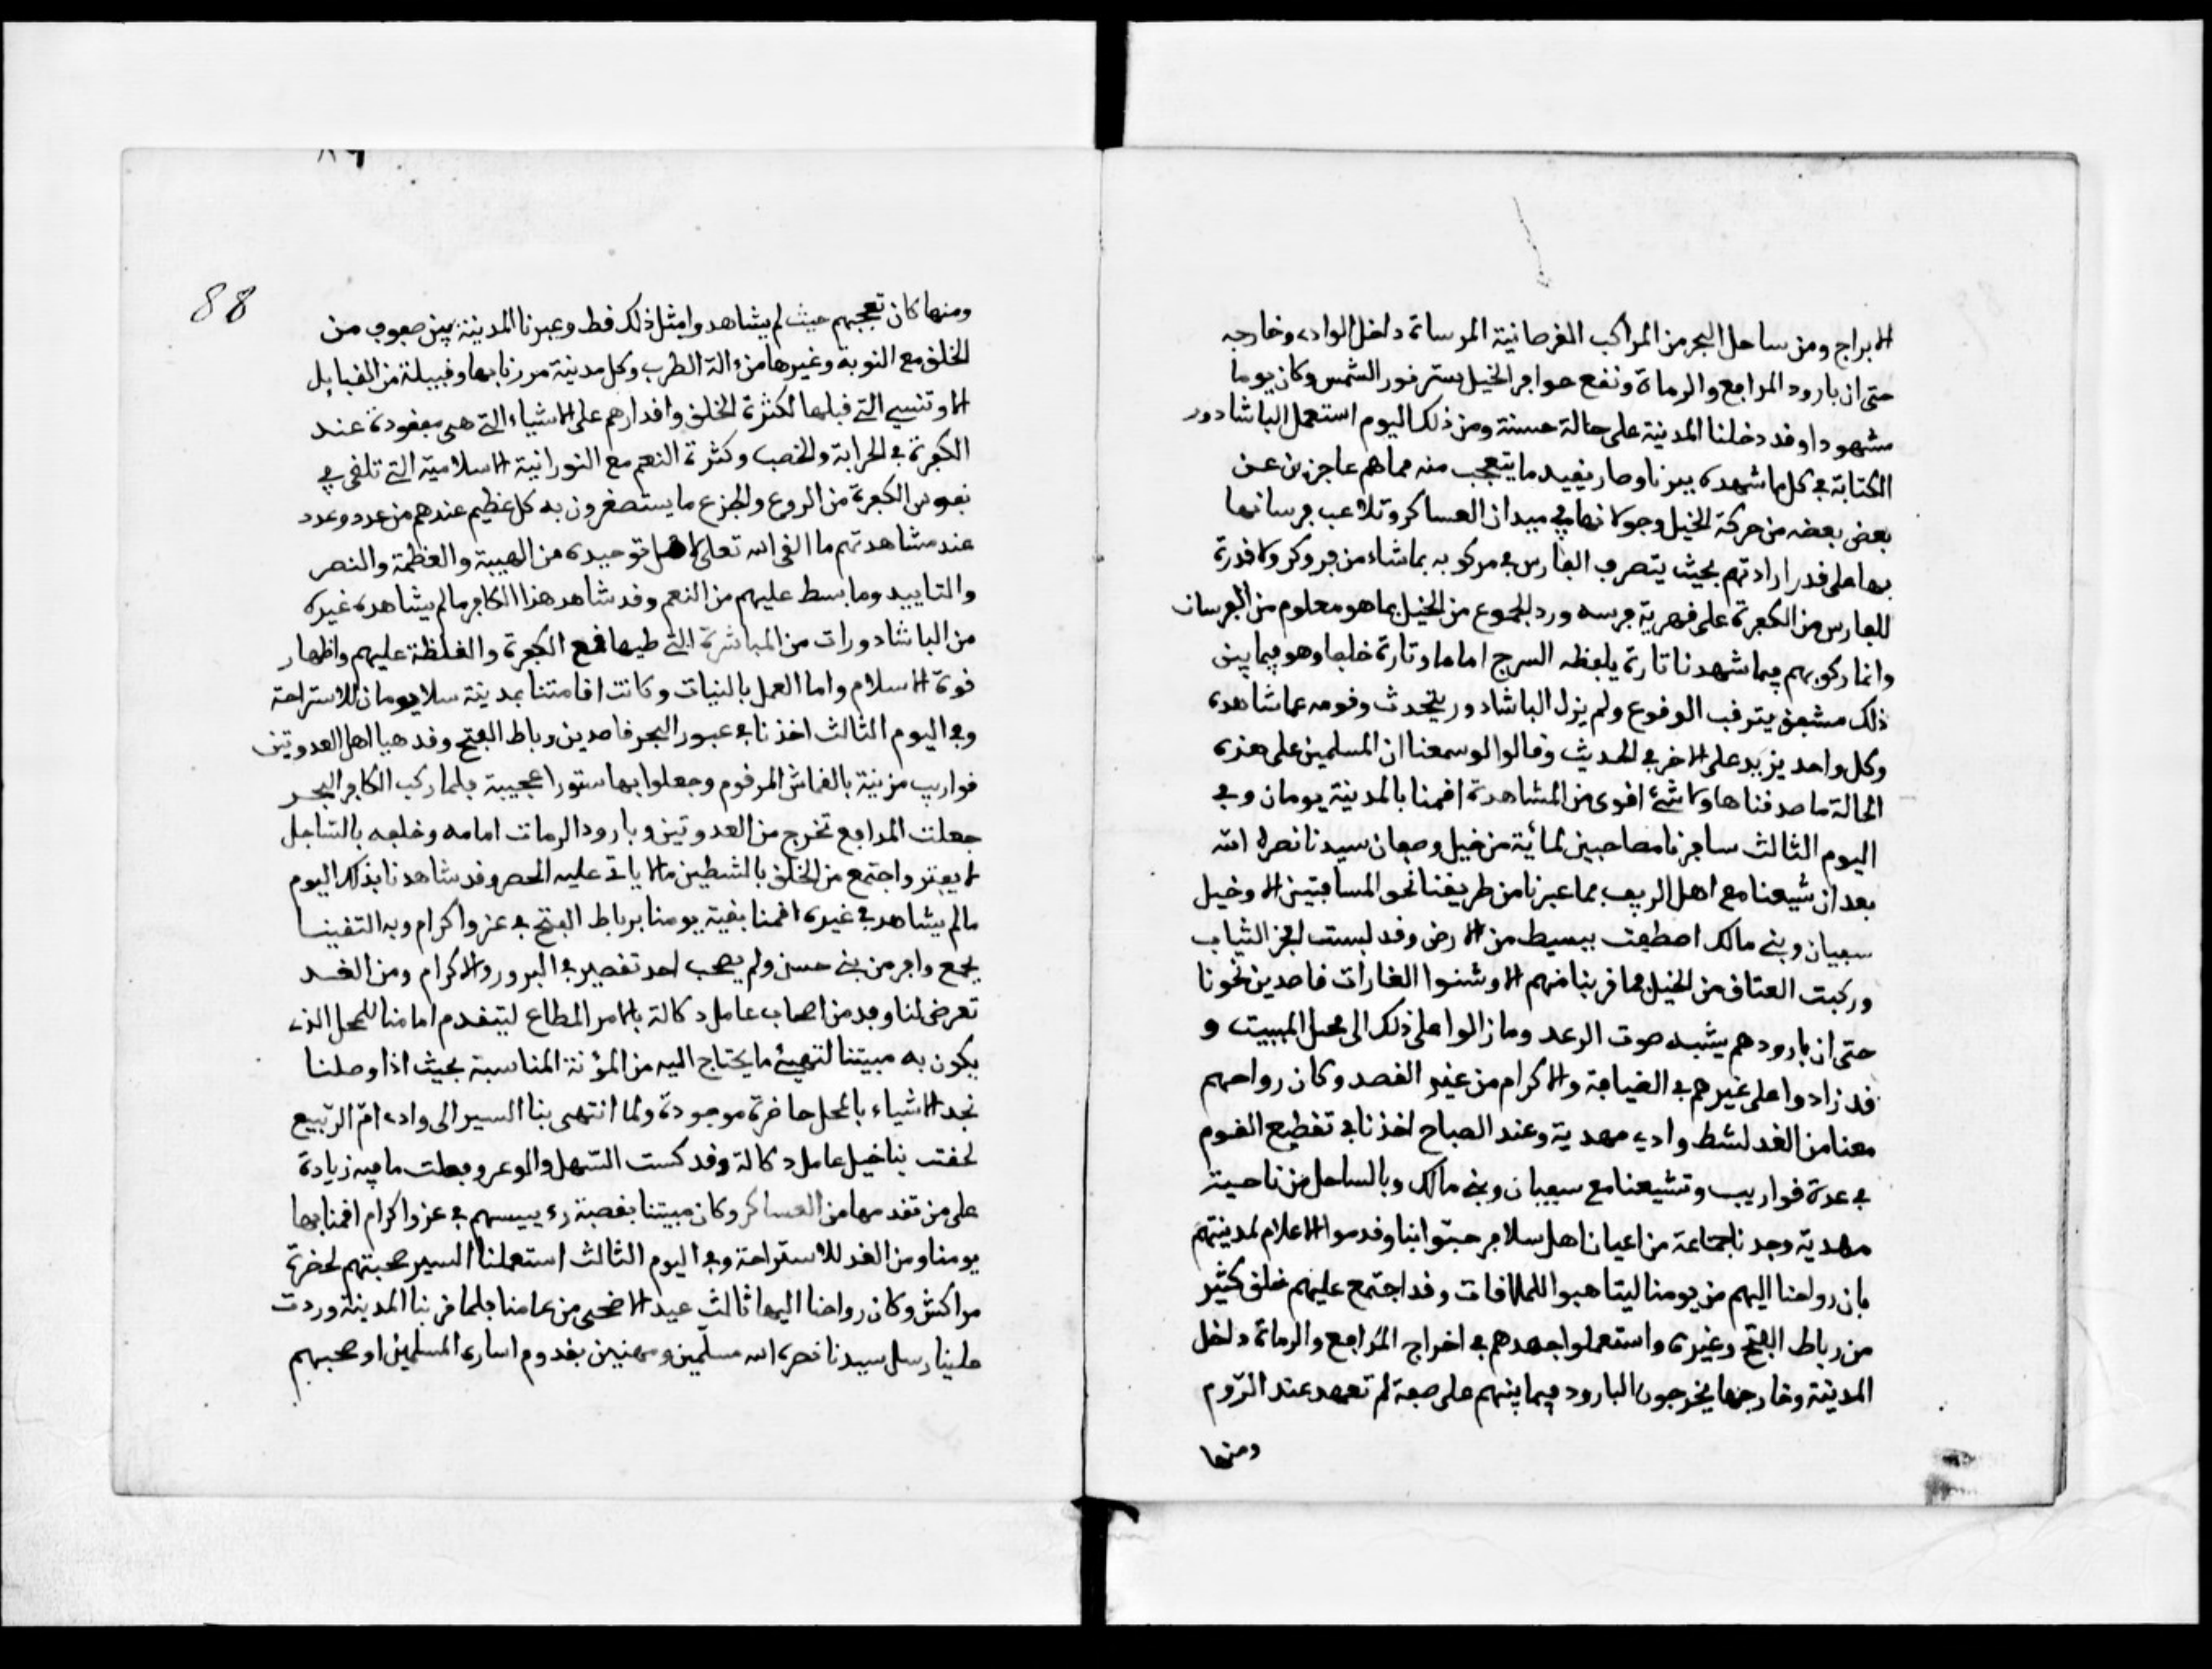 الابراج ومن ساحل البحر من المراكب القرصانية المرساة داخل الواد وخارجه
حتى ان بارود المدافع والرماة ونفع حوافر الخيل يستر نور الشمس وكان يوما
مشهودا وقد دخلنا المدينة على حالة حسنة ومن ذلك اليوم استعمل الباشادور
الكتابة في كل ما شهده ببرنا وصار يقيد ما يتعجب منه مما هم عاجزين عن
بعض بعضه من حركة الخيل وجولانها في ميدان العساكر وتلاعب فرسانها
بها على قدر ارادتهم بحيث يتصرف الفارس في مركوبه بما شاء من فر وكر ولا قدرة
للفارس من الكفرة على قهرية فرسه ورد الجموع من الخيل بما هو معلوم من الفرسان
وانما ركوبهم فيما شهدنا تارة يلفظه السرج اماما وتارة خلفا وهو فيما بين
ذلك مشفق يترقب الوقوع ولم يزل الباشادور يتحدث وقومه عما شاهده
وكل واحد يزيد على الاخر في الحديث وقالوا لو سمعنا ان المسلمين على هذه
الحالة ما صدقناها ولا شئ اقوى من المشاهدة اقمنا بالمدينة يومان وفي
اليوم الثالث سافرنا مصاحبين لمائة من خيل وصفان سيدنا نصره الله
بعد ان شيعنا مع اهل الريف بما عبرنا من طريقنا نحو المسافتين الا وخيل
سفيان وبني مالك اصطفت ببسيط من الارض وقد لبست افخر الثياب
وركبت العتاق من الخيل فما قربنا منهم الا وشنوا الغارات قاصدين نحونا
حتى ان بارودهم يشبه صوت الرعد وما زالوا على ذلك الى محل المبيت و
قد زادوا على غيرهم في الضيافة والاكرام من غير القصد وكان رواحهم
معنا من الغد لشط وادي مهدية وعند الصباح اخذنا في تقطيع القوم
في عدة قواريب وتشيعنا مع سفيان وبني مالك وبالساحل من ناحية
مهدية وجدنا جماعة من اعيان اهل سلا فرحبوا بنا وقدموا الاعلام لمدينتهم
بان رواحنا اليهم من يومنا ليتاهبوا للملاقات وقد اجتمع عليهم خلق كثير
من رباط الفتح وغيره واستعملوا جهدهم في اخراج المدافع والرماة داخل
المدينة وخارجها يخرجون البارود فيما بينهم على صفة لم تعهد عند الروم
ومنها
88
ومنها كان تعجبهم حيث لم يشاهدوا مثل ذلك قط وعبرنا المدينة بين صفوف من
الخلق مع النوبة وغيرها من ءالة الطرب وكل مدينة مررنا بها وقبيلة من القبايل
الا وتنسي التي قبلها لكثرة الخلق واقدارهم على الاشياء التي هي مفقودة عند
الكفرة في الحرابة والخصب وكثرة النعم مع النورانية الاسلامية التي تلقى في
نفوس الكفرة من الروع والجزع ما يستصغرون به كل عظيم عندهم من عدد وعدد
عند مشاهدتهم ما القى الله تعلى لاهل توحيده من الهيبة والعظمة والنصر
والتاييد وما بسط عليهم من النعم وقد شاهد هذا الكافر ما لم يشاهده غيره
من الباشادورات من المباشرة التي طيها قمع الكفرة والغلظة عليهم واظهار
قوة الاسلام واما العمل بالنيات وكانت اقامتنا بمدينة سلا يومان للاستراحة
وفي اليوم الثالث اخذنا في عبور البحر قاصدين رباط الفتح وقد هيا اهل العدوتين
قواريب مزينة بالقماش المرقوم وجعلوا بها ستورا عجيبة فلما ركب الكافر البحر
جعلت المدافع تخرج من العدوتين وبارود الرمات امامه وخلفه بالساحل
لا يفتر واجتمع من الخلق بالشطين ما لا ياتي عليه الحصر وقد شاهدنا بذلك اليوم
ما لم يشاهد في غيره اقمنا بقية يومنا برباط الفتح في عز واكرام وبه التقينا
بجمع وافر من بني حسن ولم يصحب احد تقصير في البرور والاكرام ومن الغد
تعرض لنا وفد من اصحاب عامل دكالة بالامر المطاع ليتقدم امامنا للمحل الذي
يكون به مبيتنا لتهيئ ما يحتاج اليه من المؤنة المناسبة بحيث اذا وصلنا
نجد الاشياء بالمحل حاضرة موجودة ولما انتهى بنا السير الى واد ام الربيع
لحقت بنا خيل عامل دكالة وقد كست السهل والوعر وفعلت ما فيه زيادة
على من تقدمها من العساكر وكان مبيتنا بقصبة رءييسهم في عز واكرام اقمنا بها
يومنا ومن الغد للاستراحة وفي اليوم الثالث استعملنا السير صحبتهم لحضرة
مراكش وكان رواحنا اليها ثالث عيد الاضحى من عامنا فلما قربنا المدينة وردت
علينا رسل سيدنا نصره الله مسلمين ومهنيين بقدوم اسارى المسلمين او صحبهم